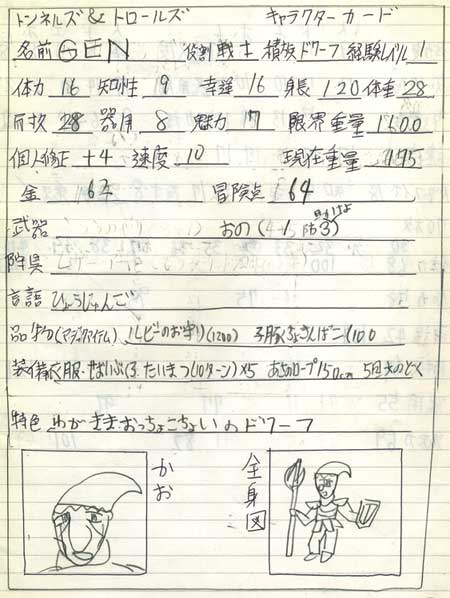 トンネルズ&トロールズ キャラクターカード
名前 GEN 役割 戦士 種族 ドワーフ 経験レベル 1
体力 16 知性 9 幸運 16 身長 120 体重 28
耐久 28 器用 8 魅力 7 限界重量 1600
個人修正 +4 速度 10 現在重量 775
金 62 冒険点 64
武器 おの
防具
言語 ひょうじゅんご
品物(マジックアイテム) ルビーのお守り(1200) 子豚ちょきんばこ(100
装備 衣服 せおいぶくろ たいまつ(10ターン)×5 あさのロープ150cm 5回犬のどく
特色 わかき おっちょこちょいのドワーフ
かお
全身図